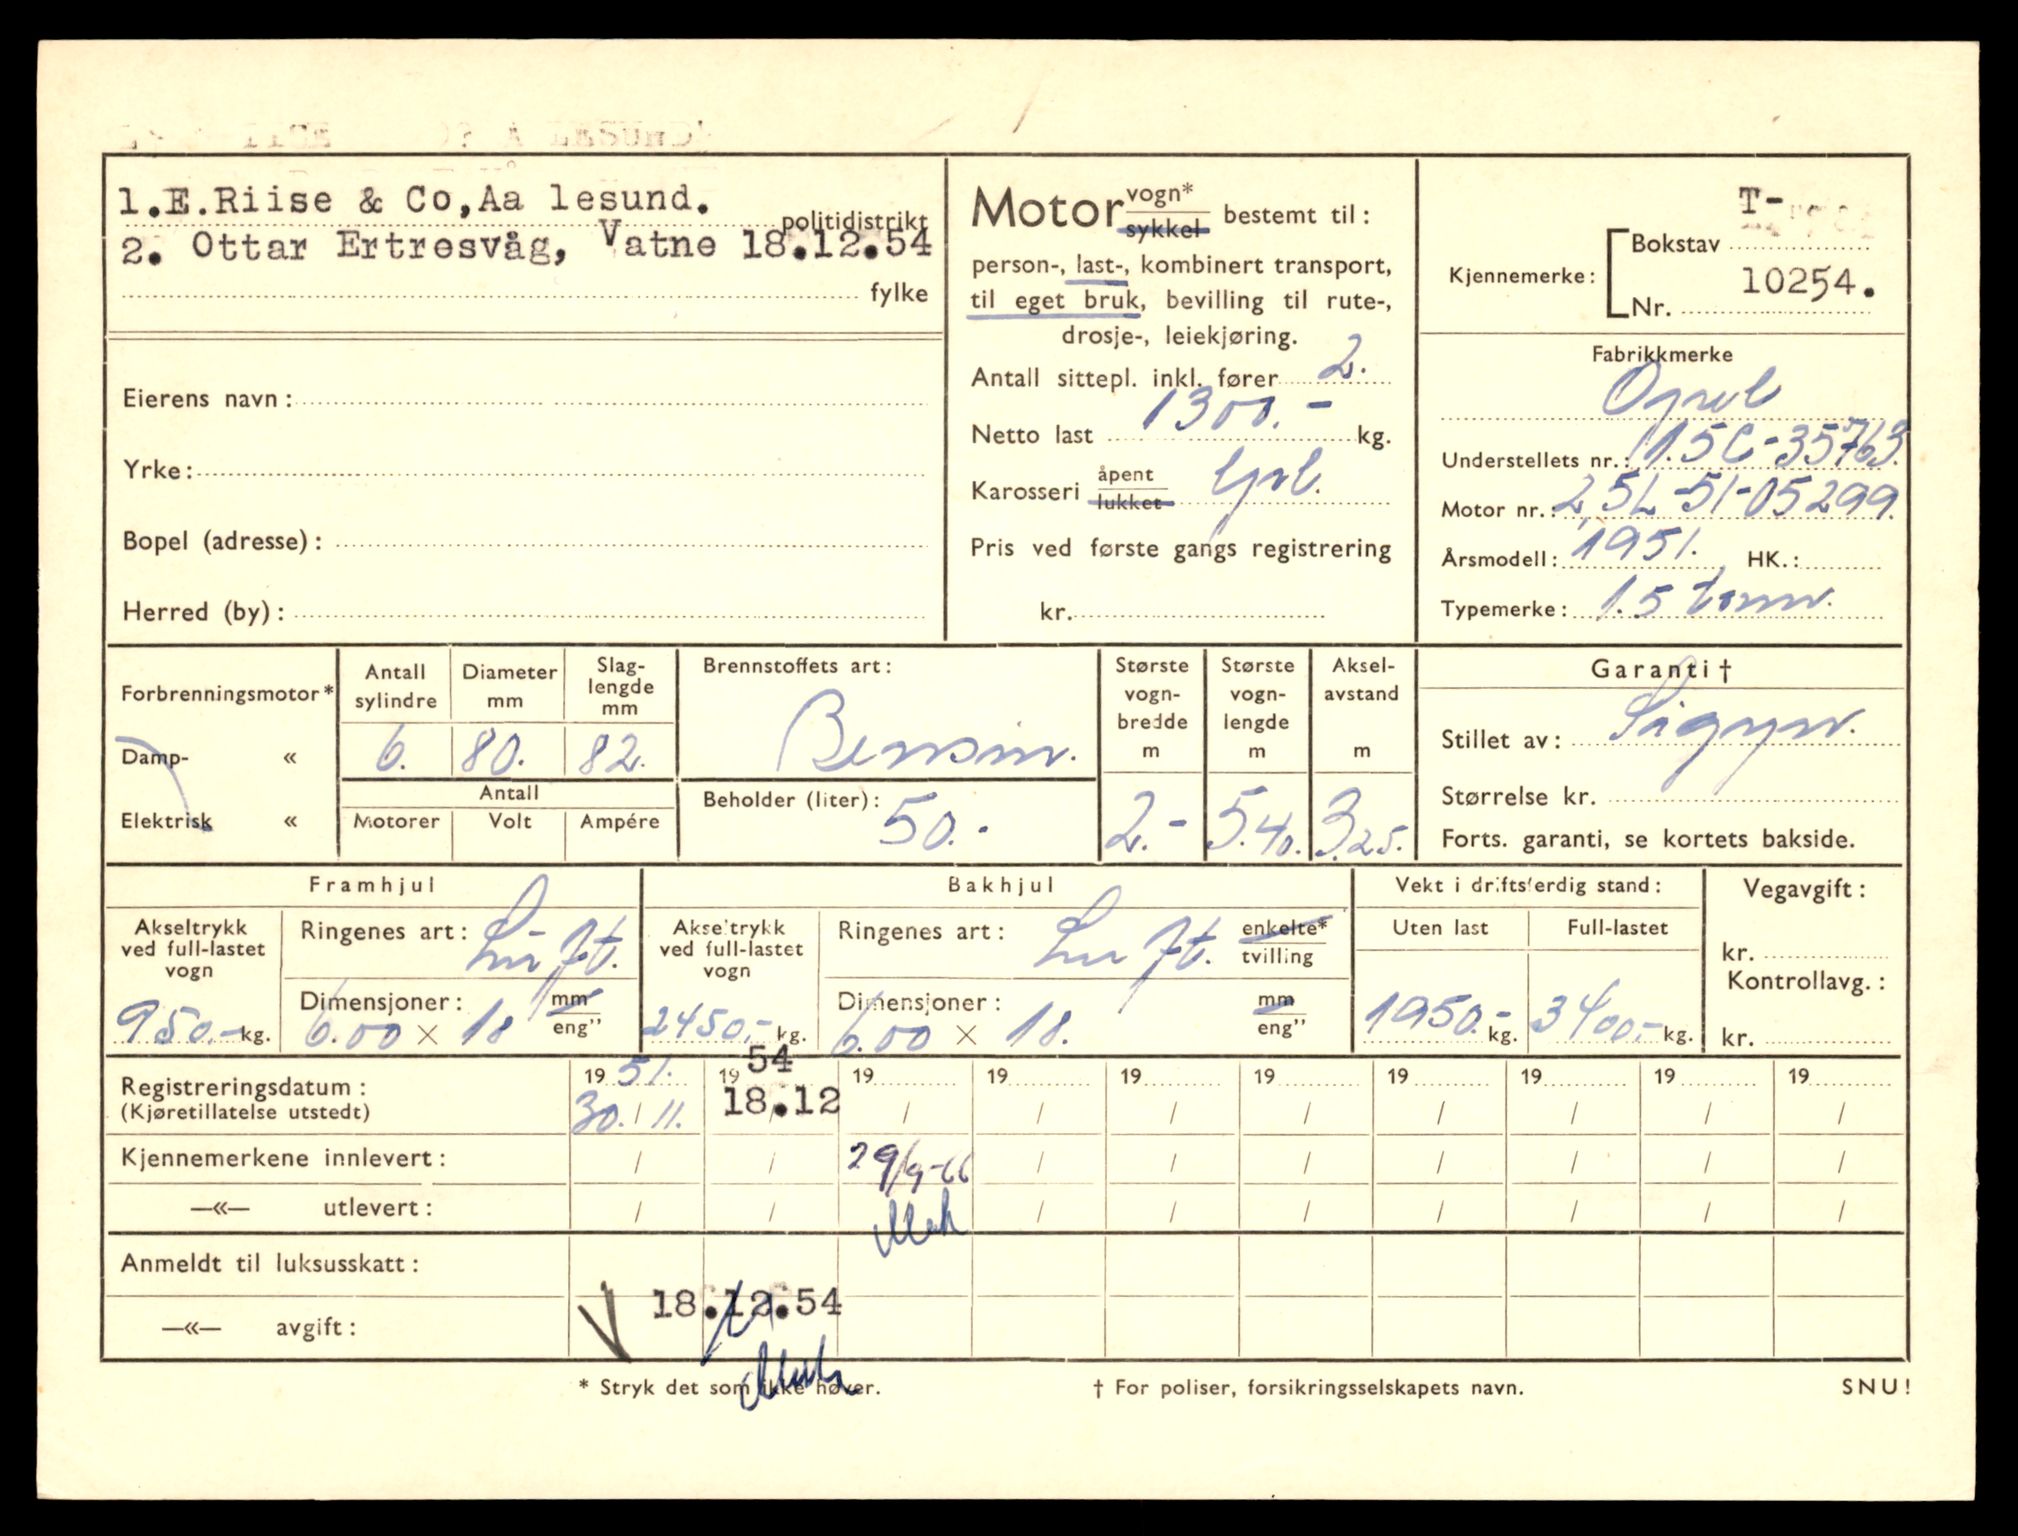 1.E.Riise & Co,Aa lesund.
politidistrikt
2. Ottar Ertresvåg, Vatne 18.12.54
fylke
Eierens navn:
Yrke:
Bopel (adresse):
Herred (by):
Motor vogn* sykkel bestemt til:
person-, last-, kombinert transport,
til eget bruk, bevilling til rute-,
drosje-, leiekjøring.
Antall sittepl. inkl. fører 2.
Netto last 1300.- kg.
Karosseri åpent lukket
Pris ved første gangs registrering
kr.
T-
Kjennemerke: Bokstav
10254.
Nr.
Fabrikkmerke
Opel
Understellets nr.: 1.5 C-35763.
Motor nr.: 2,5L-51-05299.
Årsmodell: 1951. HK.:
Typemerke: 1.5 tonn.
Forbrenningsmotor*
Damp- «
Elektrisk «
Antall sylindre Diameter mm Slag-lengde mm
6. 80. 82.
Antall
Motorer Volt Ampére
Brennstoffets art:
Bensin.
Beholder (liter): 50.-
Største vogn-bredde m Største vogn-lengde m Aksel-avstand m
2.- 5.40. 3.25.
Garanti †
Stillet av: Sigyn.
Størrelse kr.
Forts. garanti, se kortets bakside.
Framhjul
Akseltrykk ved full-lastet vogn
950.- kg.
Ringenes art: Luft.
Dimensjoner: mm
6.00 × 18 eng”
Bakhjul
Akseltrykk ved full-lastet vogn
2450.- kg.
Ringenes art: Luft. enkelte* tvilling
Dimensjoner: mm
6.00 × 18. eng”
Vekt i driftsferdig stand:
Uten last Full-lastet
1950.- kg. 3400.- kg.
Vegavgift:
kr.
Kontrollavg.:
kr.
Registreringsdatum: 19 51. 19 54 19 19 19 19 19 19 19 19
(Kjøretillatelse utstedt) 30./11. 18.12 / / / / / / / /
Kjennemerkene innlevert: / / 29/9-66 / / / / / / /
—«— utlevert: / / / / / / / / /
Anmeldt til luksusskatt:
18.12.54
—«— avgift:
* Stryk det som ikke høver.
† For poliser, forsikringsselskapets navn.
SNU!